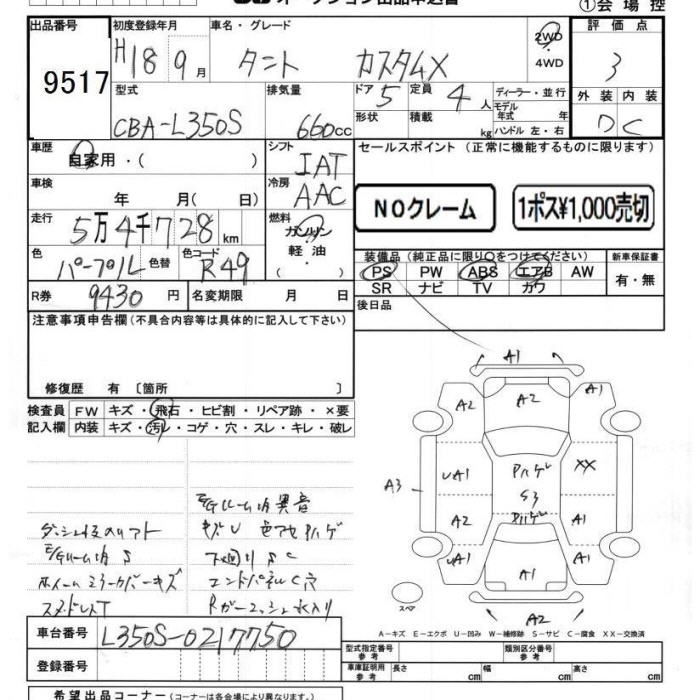 ①会場控
出品番号 初度登録年月 車名・グレード 評価点
9517
H18 9月 タント カスタムX 2WD
・
4WD
3
型式 排気量 ドア 5 定員 4人 ディーラー・並行
CBA-L350S 660cc
形状 積載 kg モデル年式 年式 ハンドル 左・右
外装 内装
D C
車歴 自家用・( )
シフト IAT
車検 年 月( 日)
冷房 AAC
走行 5万4千728km
燃料 ガソリン
軽油
( )
色 パープル 色替 色コード R49
R券 9430円 名変期限 月 日
セールスポイント (正常に機能するものに限ります)
NOクレーム 1ポス¥1,000売切
装備品 (純正品に限り○をつけてください) 新車保証書
PS PW ABS エアB AW
SR ナビ TV カワ
有・無
後日品
注意事項申告欄(不具合内容等は具体的に記入して下さい)
修復歴 有 〔箇所 〕
検査員 FW キズ・飛石・ヒビ割・リペア跡・×要
記入欄 内装 キズ・汚レ・コゲ・穴・スレ・キレ・破レ
E/Gルーム内異音
E/Gルーム内 S
下廻り S C
エンドパネルC穴
スタッドレスT
A1
A2 A2 A1
A3 UA1 パハゲ XX
S3
A2 パハゲ A1
UA1 A1 A1
スペア
A2
A-キズ E-エクボ U-凹み W-補修跡 S-サビ C-腐食 XX-交換済
車台番号 L350S-0217750
登録番号
型式指定番号 参考 類別区分番号 参考
車庫証明用 参考 長さ cm 幅 cm 高さ cm
希望出品コーナー (コーナーは各会場により異なります。)